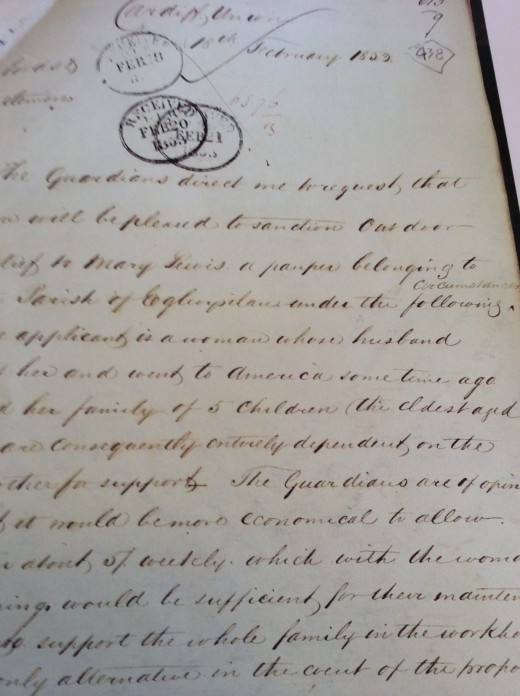 Cardiff Union
9
18th February 1853
438
RECEIVED
FEB 20
1853
FEB 21
1853
The Guardians direct me to request that
will be pleased to sanction Out door
relief to Mary Lewis a pauper belonging to
circumstances
Parish of Eglwysilan under the following
applicant is a woman whose husband
her and went to America some time ago
her family of 5 children (the eldest aged
are consequently entirely dependent on the
other for support The Guardians are of opin
it would be more economical to allow
about 5/ weekly which with the woma
would be sufficient for their mainten
support the whole family in the workho
only alternative in the event of the propo